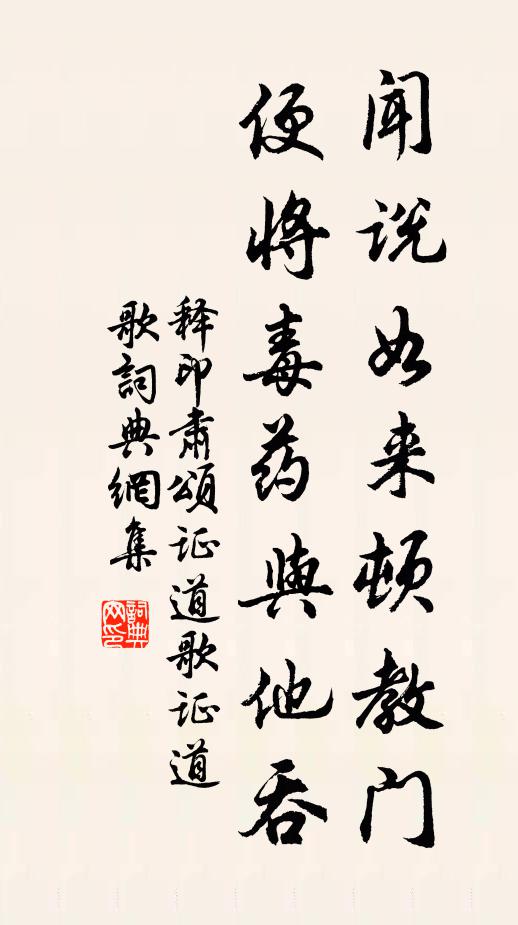 闻说如来顿教门
便将毒药與他吞
释印肃颂证道歌证道
歌詞典網集
詞典网印